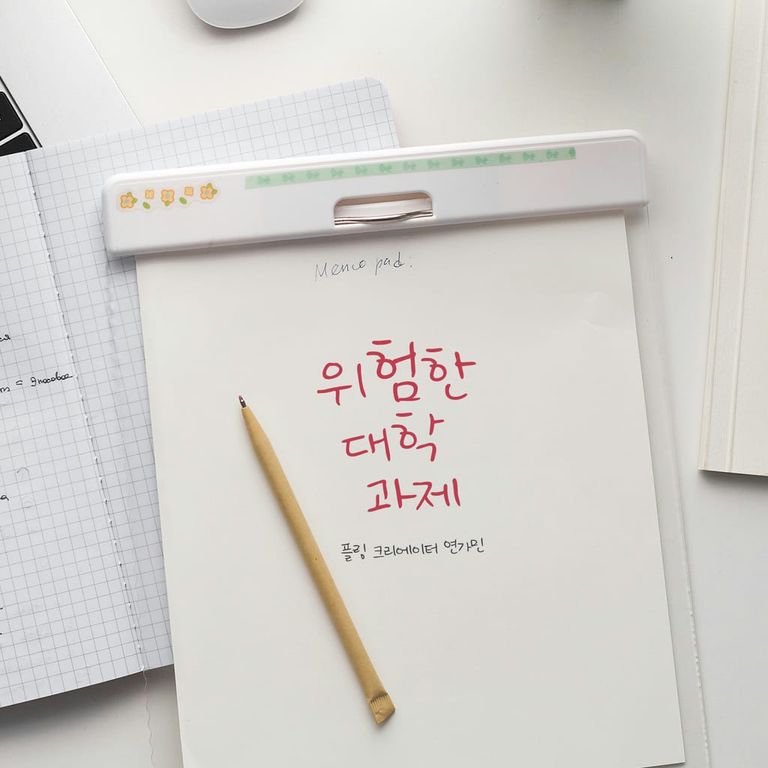 Memo pad:
위험한
대학
과제
플링 크리에이터 연가민